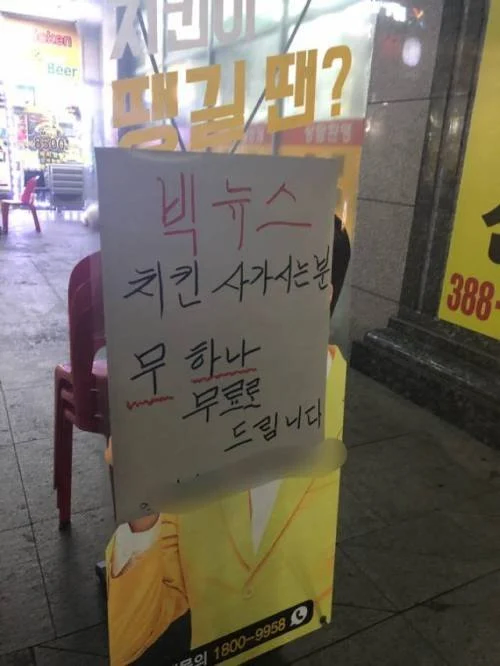 치킨이
땡길 땐?
빅뉴스
치킨 사가시는분
무 하나
무료로
드립니다
Beer
8500
388-
1800-9958